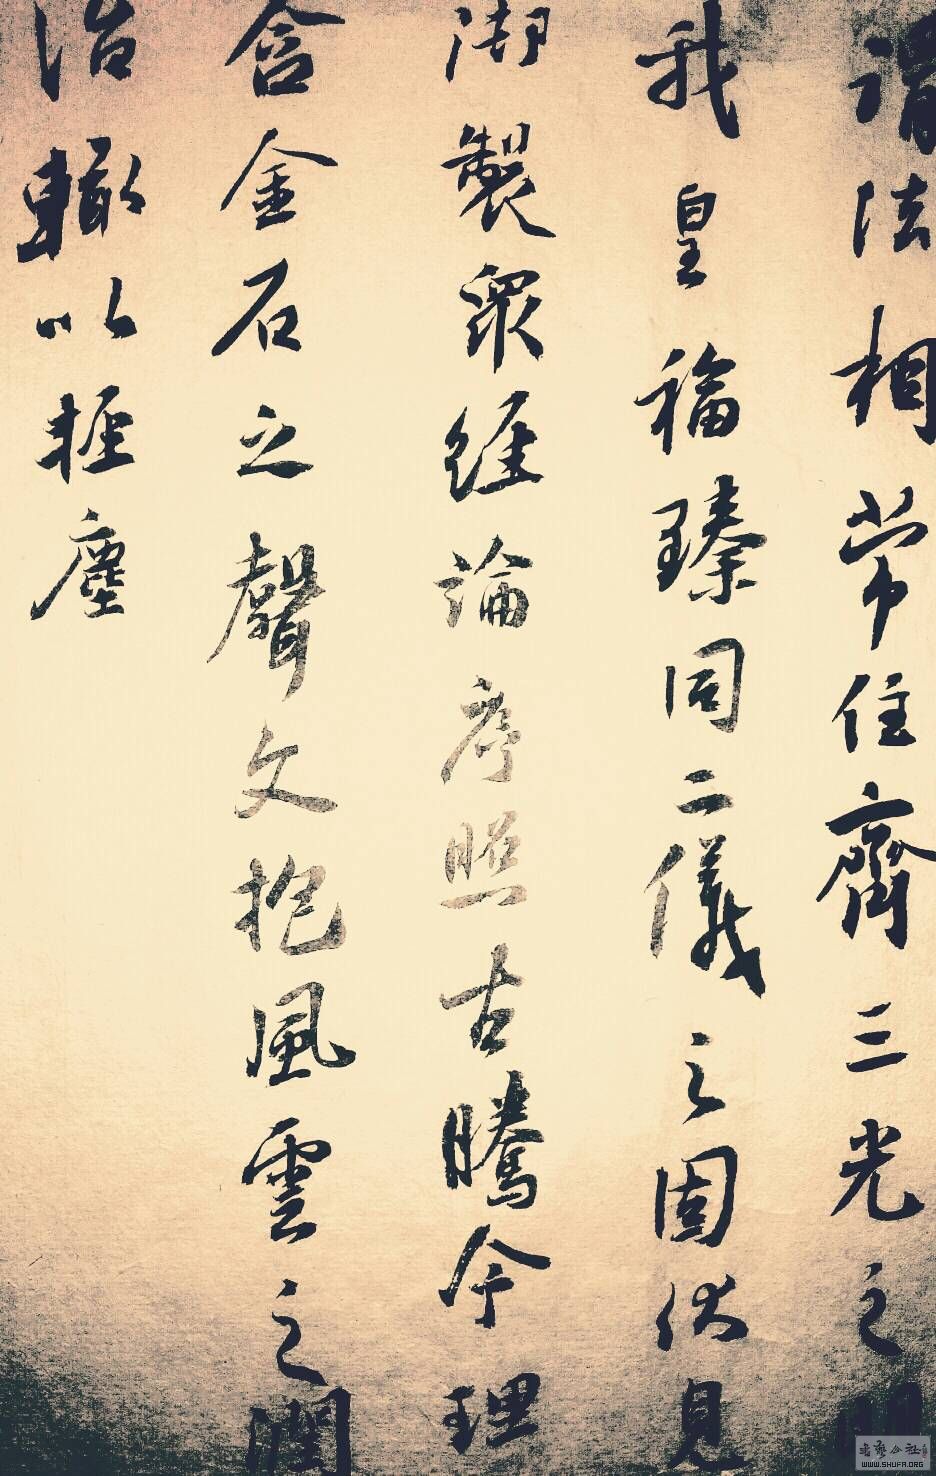 謂法相常住齊三光之明
我皇福臻同二儀之固伏見
御製眾經論序照古騰今理
含金石之聲文抱風雲之潤
治輙以輕塵
WWW.SHUFA.ORG